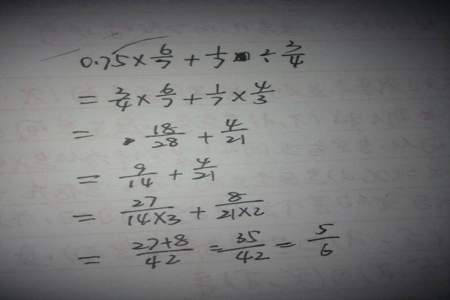 0.75×6/7+1/7÷3/4
=3/4×6/7+1/7×4/3
=18/28+4/21
=9/14+4/21
=27/14×3+8/21×2
=27+8/42=35/42=5/6